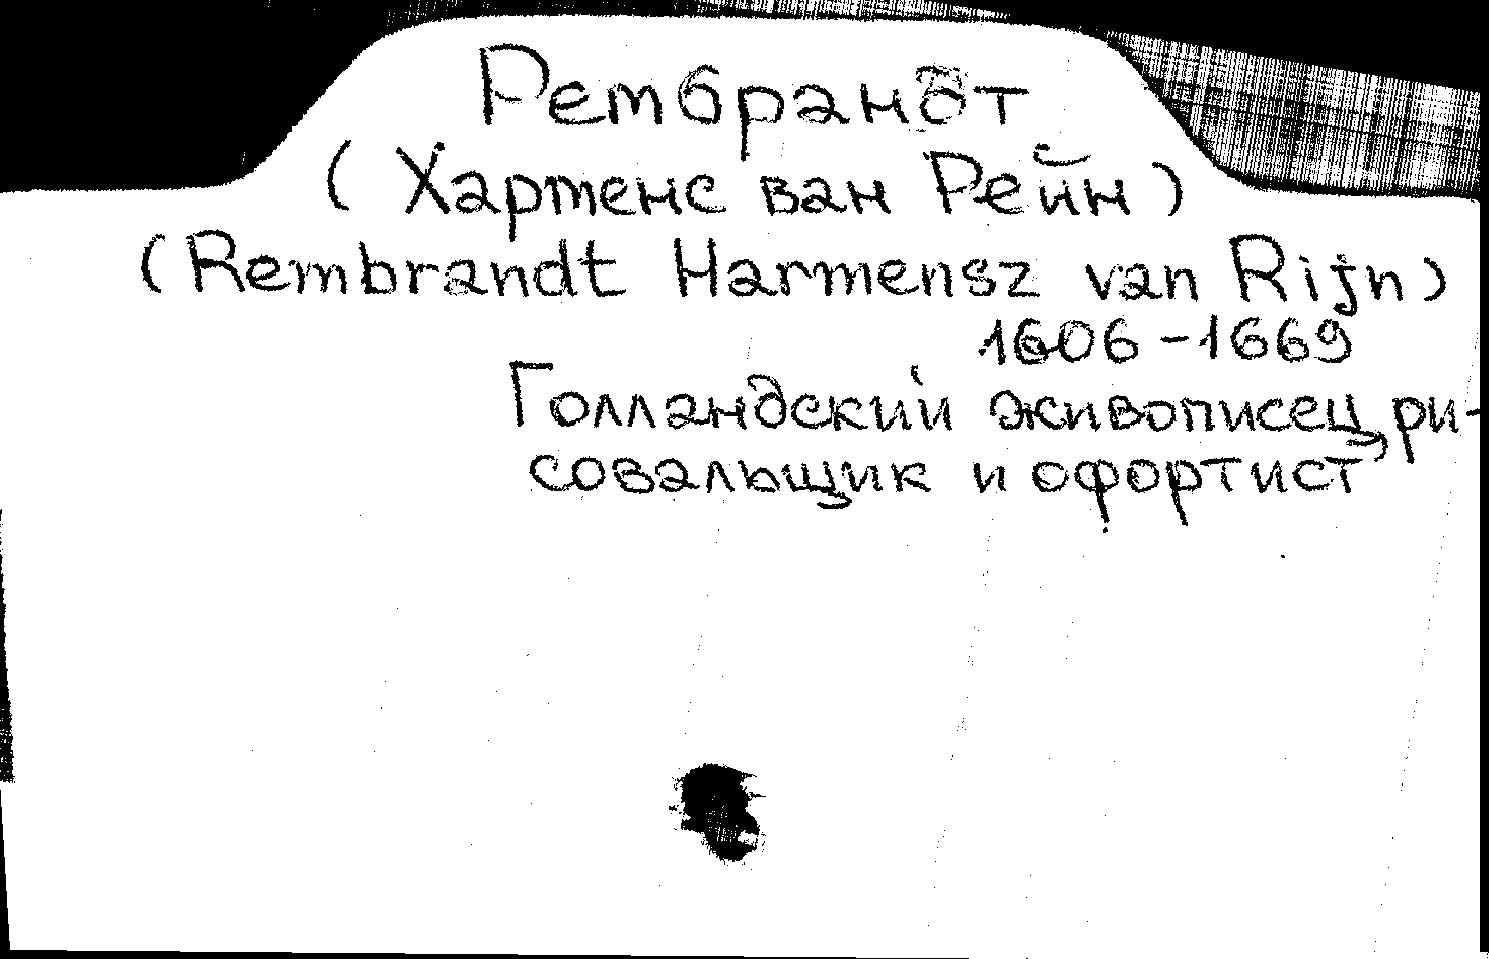 Рембрандт
(Харменс ван Рейн)
(Rembrandt Harmensz van Rijn)
1606-1669
Голландский живописец, ри-
совальщик и офортист